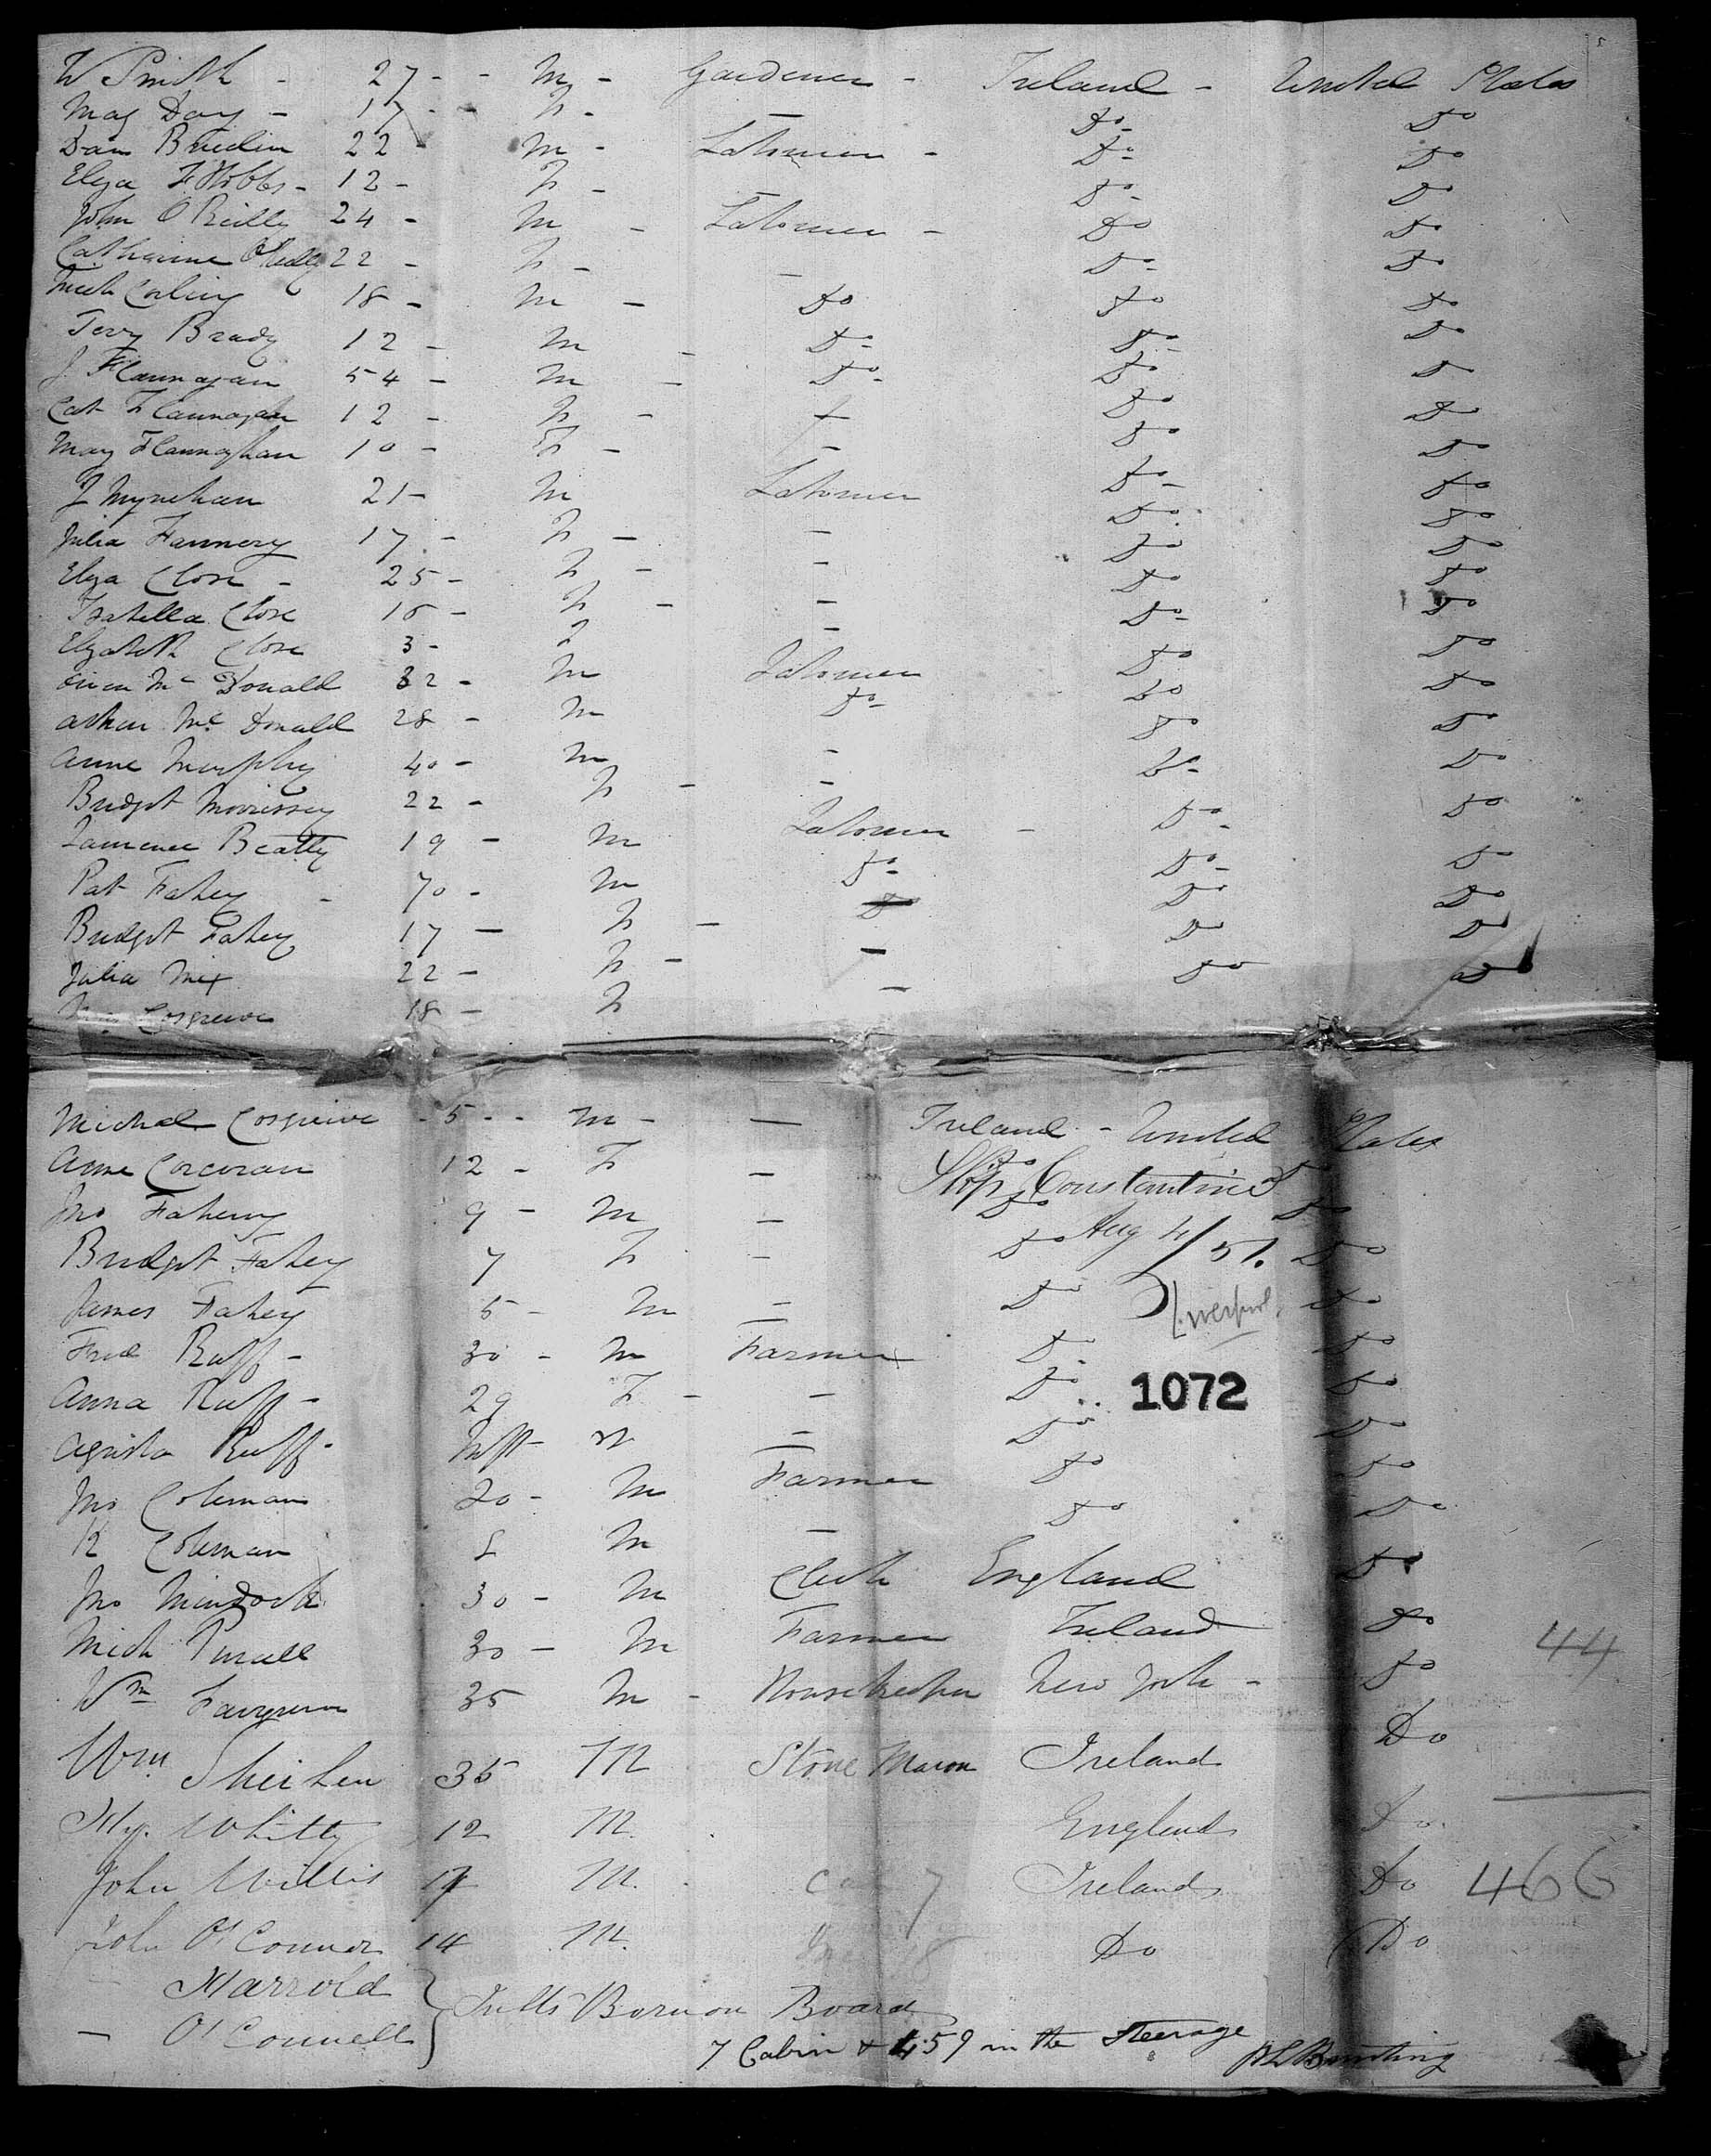 W Smith - 27 - - M - Gardener - Ireland - United States
Mag Day - 17 - - F - — Do - Do
Dan Bredin 22 M - Labourer - Do - Do
Eliza F. Hobbs - 12 - F - Do - Do
John O Reilly 24 - M - Labourer - Do Do
Catharine O'Reilly 22 - F - — Do - Do
Mich 18 - M - Do Do Do
Terry Brady 12 - M - Do - Do - Do
J Flannagan 54 - M - Do - Do Do
Cat Flannagan 12 - F - Do Do
Mary Flannaghan 10 - F - — Do Do
J Mynehan 21 - M Labourer Do - Do
Julia Fannery 17 - F - — Do Do
Eliza Close - 25 - F - — Do Do
Isabella Close F - — Do Do
Elizabeth Close 3 - F — Do - Do
Owen Mc Donald 32 - M Labourer Do Do
Arthur Mc Donald 28 - M Do - Do Do
Anne Murphy 40 - M — Do Do
Bridget Morrissey 22 - F - — Do - Do
Laurence Beatty 19 - M Labourer - Do - Do
Pat Fahey - 70 - M Do - Do - Do
Bridget Fahey 17 — F - Do Do
Julia Mix 22 - F - — Do Do
Cosgreive 18 - F — Do Do
Michael Cosgreive - 5 - - M - — Ireland - United States
Anne Corcoran 12 - F — Do Do
Ship Constantine
Jno Faheny 9 - M — Do Do
Aug 4/51.
Bridget Fahey 7 F — Do Do
James Fahey 5 - M — Do Do
Liverpool
Fred Ruff - 30 - M Farmer Do Do
Anna Ruff - 29 F - — Do Do
1072
Ruff - Inft — Do Do
Jno Coleman 20 - M Farmer Do Do
K Coleman M — Do Do
Jno Murdock 30 - M Clerk England Do
Mich Pursell 30 - M Farmer Ireland Do
44
Wm 35 M - Housekeeper New York - Do
Wm Sheihen 35 M Stone Mason Ireland Do
Hy. Whitty 12 M. England Do.
John Willis 17 M. Cab 7 Ireland Do
466
John O'Connor 14 M. Do Do
— Harrold } Infts Born on Board
— O'Connell
7 Cabin & 459 in the Steerage
Bunting